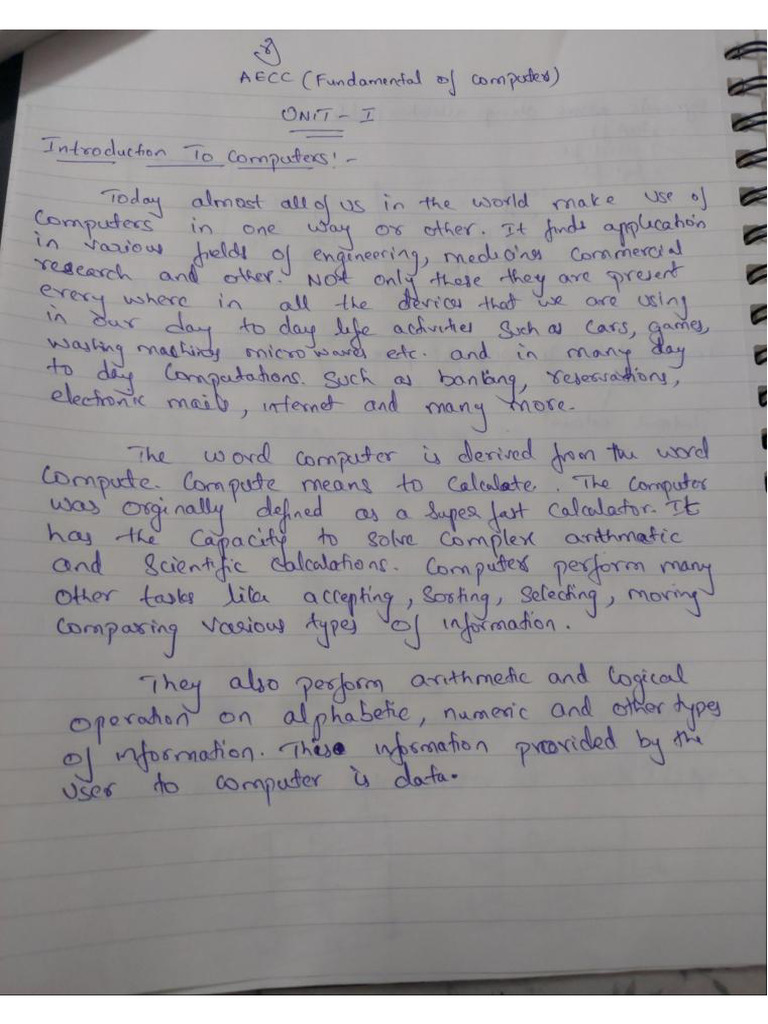 AECC (Fundamental of computer)
UNIT - I
Introduction To computers! -
Today almost all of us in the world make use of
computers in one way or other. It finds application
in various fields of engineering, medicines commercial
research and other. Not only these they are present
every where in all the devices that we are using
in our day to day life activities Such as cars, games,
washing machines microwaves etc. and in many day
to day computations. Such as banking, reservations,
electronic mails, internet and many more.
The word computer is derived from the word
compute. Compute means to calculate. The computer
was orginally defined as a super fast calculator. It
has the capacity to solve complex arithmatic
and Scientific calculations. Computer perform many
other tasks like accepting, sorting, selecting, moving
comparing various types of information.
They also perform arithmetic and logical
operation on alphabetic, numeric and other types
of information. This information provided by the
user to computer is data.